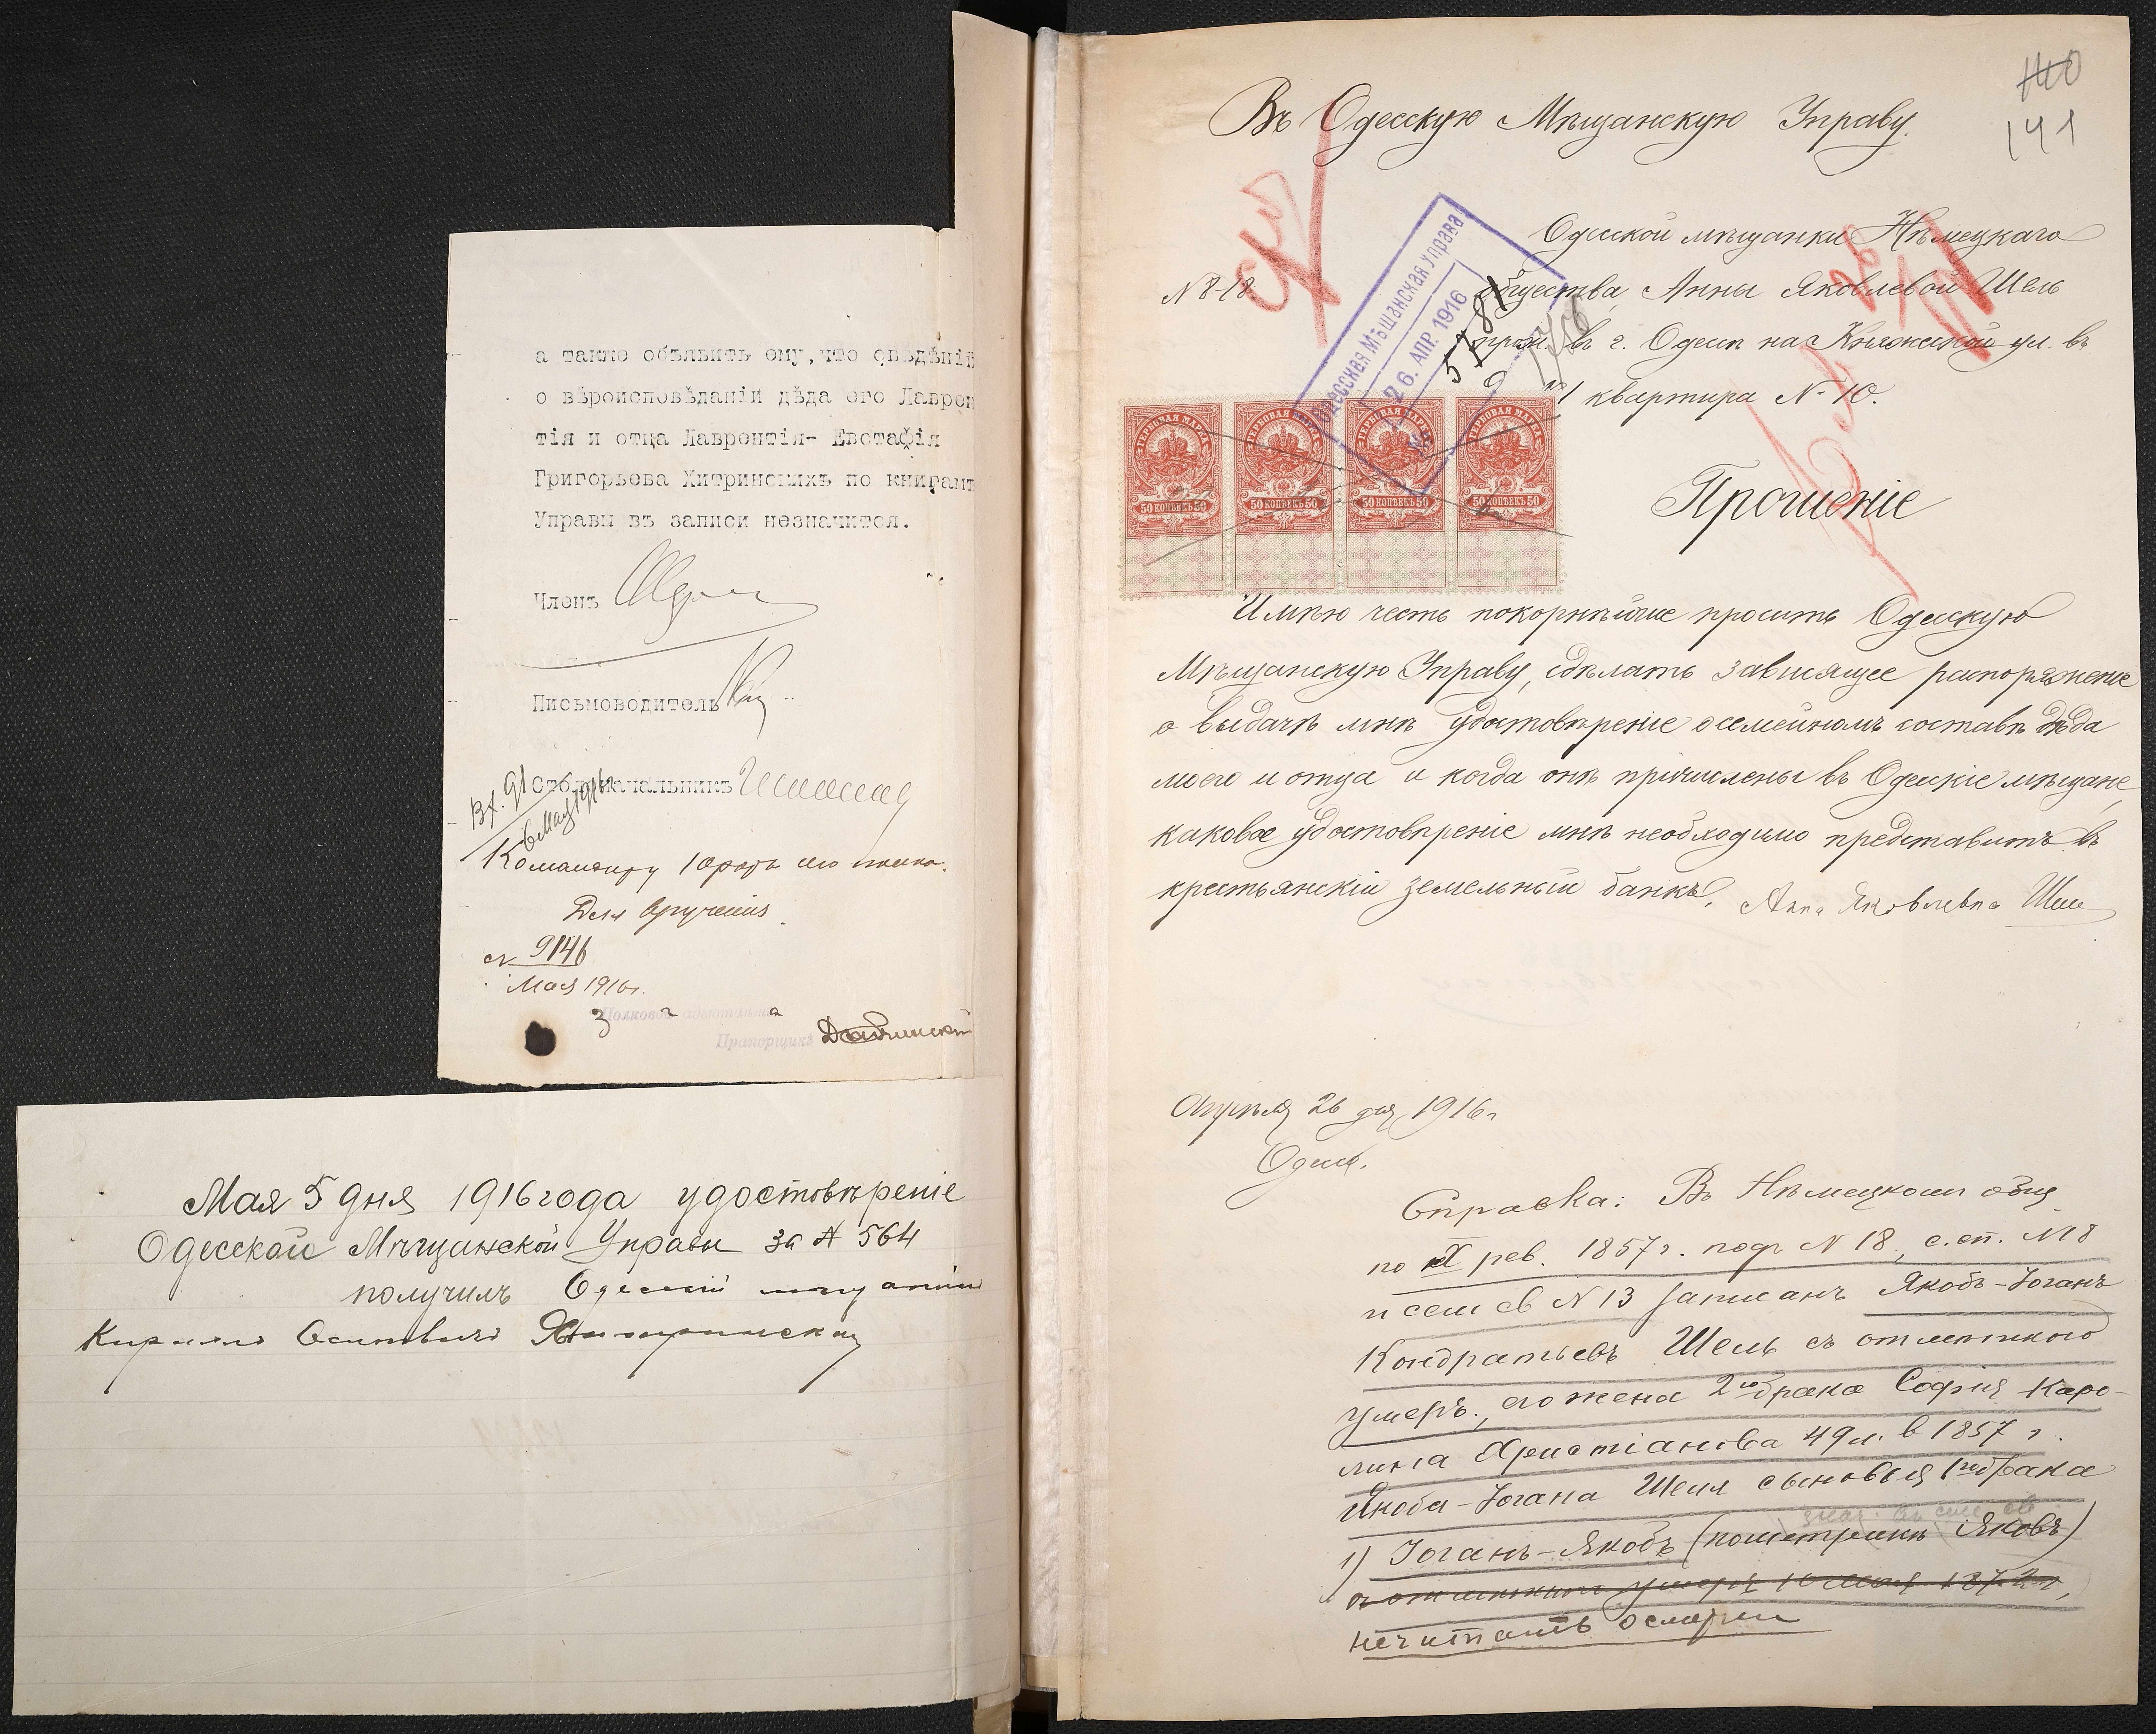 а также объявить ему, что свѣдѣній
о вѣроисповѣданіи дѣда его Лаврен
тія и отца Лаврентія- Евстафія
Григорьева Хитринскихъ по книгамъ
Управы въ записи незначится.
Членъ
Письмоводитель
Столоначальникъ
Вх. 91
6 Мая 1916 г.
Командиру 10 роты
Для врученія.
№ 9146
Мая 1916 г.
Прапорщикъ
Мая 5 дня 1916 года удостовѣреніе
Одесской Мѣщанской Управы за № 564
получилъ Одесскій мѣщанин
Кирилло Осиповичъ Хитринскій
140
141
Въ Одесскую Мѣщанскую Управу.
Одесской мѣщанки Нѣмецкаго
№ 8-18
общества, Анны Яковлевой Шель
прож. въ г. Одессѣ на Княжеской ул. въ
д. № 1 квартира № 10.
Одесская Мѣщанская Управа
26. АПР. 1916
5781
ГЕРБОВАЯ МАРКА ГЕРБОВАЯ МАРКА ГЕРБОВАЯ МАРКА ГЕРБОВАЯ МАРКА
50 КОПѢЕКЪ 50 50 КОПѢЕКЪ 50 50 КОПѢЕКЪ 50 50 КОПѢЕКЪ 50
Прошеніе
Имѣю честь покорнѣйше просить Одесскую
Мѣщанскую Управу, сдѣлать зависящее распоряженіе
о выдачѣ мнѣ удостовѣреніе о семейномъ составѣ дѣда
моего и отца и когда онѣ причислены въ Одесскіе мѣщане,
каковое удостовѣреніе мнѣ необходимо представить въ
крестьянскій земельный банкъ. Анна Яковлевна Шель
Апрѣля 26 дня 1916 г.
Одесса.
Справка: Въ Нѣмецкомъ общ
по X рев. 1857 г. подъ № 18, с. сп. № 18
и сем св № 13 записанъ Якобъ-Іоганъ
Кондратьевъ Шель съ отмѣткою
умеръ., его жена 2го брака Софія Каро-
лина Христіанова 49 л. в 1857 г.
Якоба-Іогана Шеля сыновья 1го брака
1) Іоганъ-Якобъ (по метрикѣ Яковъ)
съ отмѣткою умеръ 10 Мая 1872 г.,
нечитать о смерти